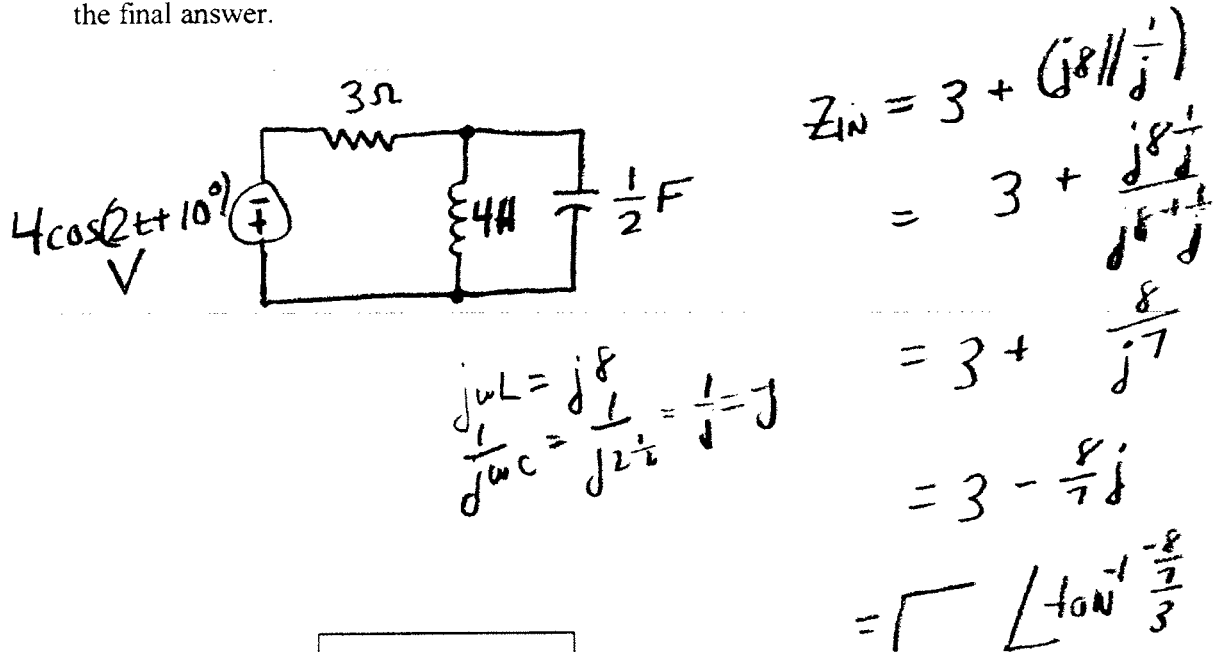 the final answer.
3Ω
4cos(2t+10°)
V
4H
1/2 F
jωL = j8
1/jωC = 1/j2½ = 1/j = J
Z_IN = 3 + (j8 || 1/j)
= 3 + j8 1/j / j8 + 1/j
= 3 + 8/j7
= 3 - 8/7 j
= √ ∠tan⁻¹ -8/7 / 3